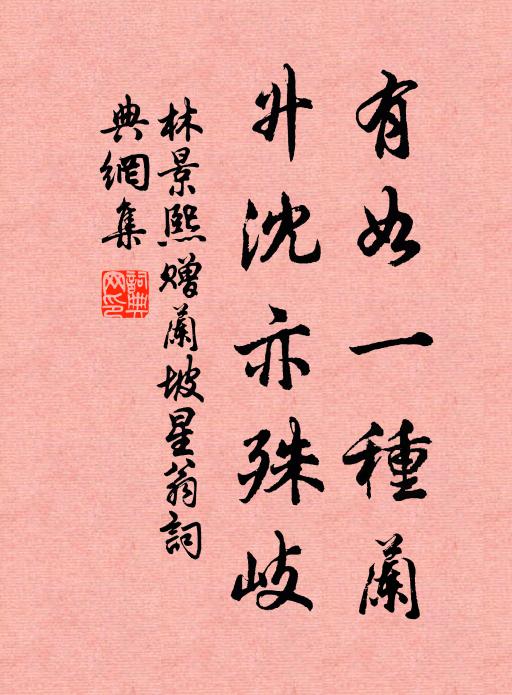 有如一種蘭
升沈亦殊岐
林景熙贈蘭坡星翁詞
典網集
詞典網印